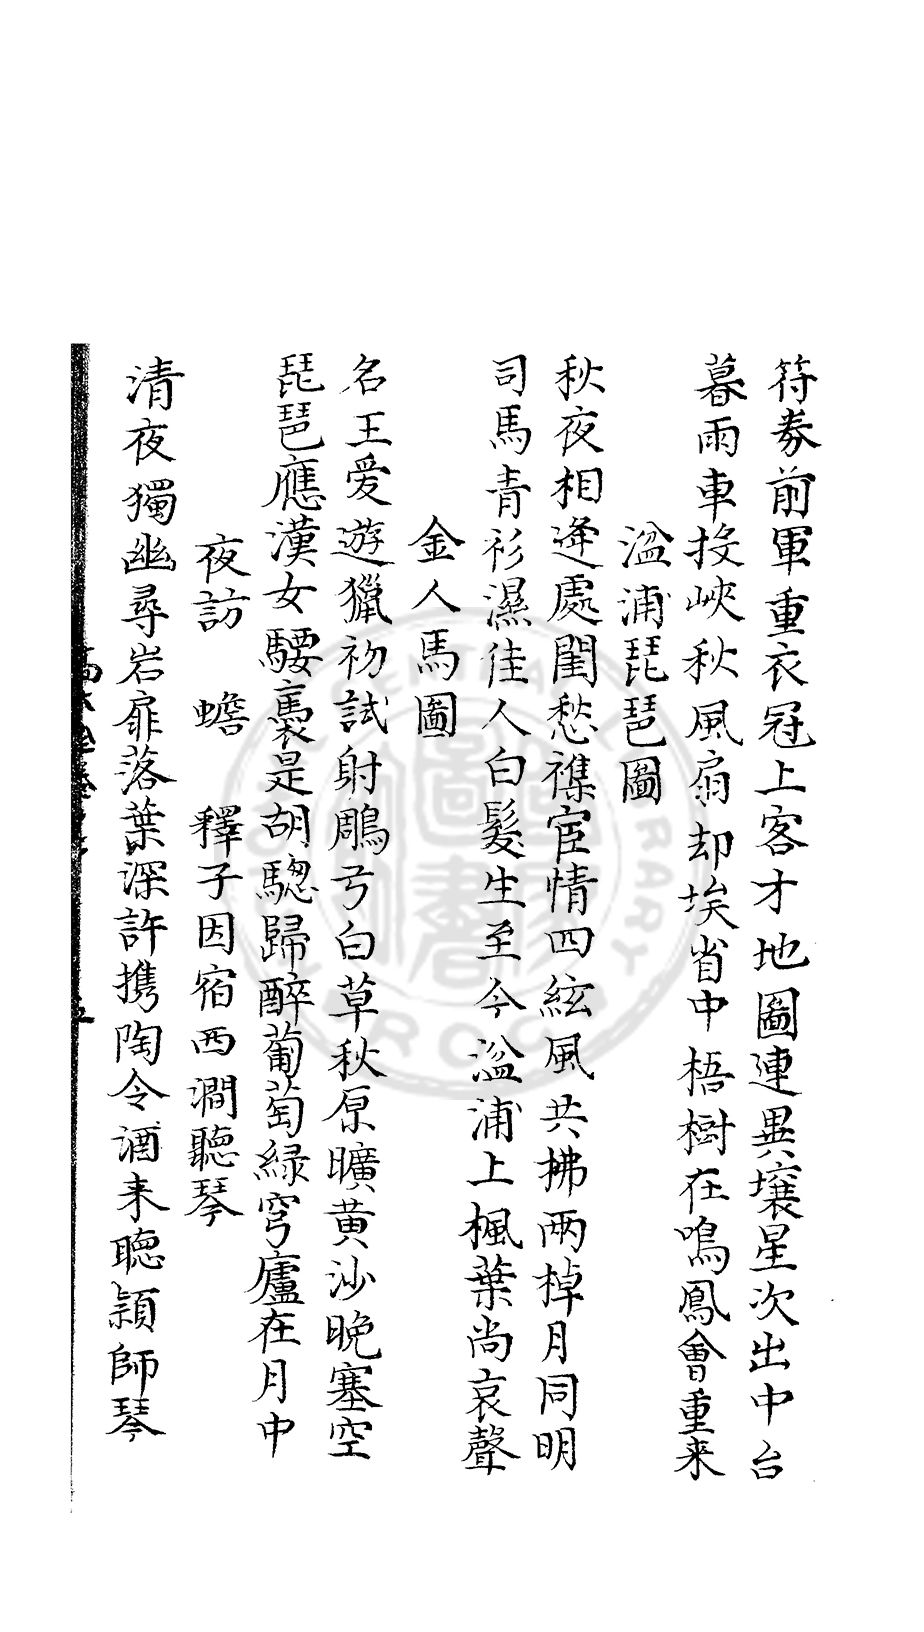 符券前軍重衣冠上客才地圖連異壤星次出中台
暮雨車投峽秋風扇却埃省中梧樹在鳴鳳會重来
湓浦琵琶圖
秋夜相逢處閨愁襍宦情四絃風共拂兩棹月同明
司馬青衫濕佳人白髮生至今湓浦上楓葉尚哀聲
金人馬圖
名王爱遊獵初試射鵰弓白草秋原曠黄沙晚塞空
琵琶應漢女騕褭是胡驄歸醉葡萄緑穹廬在月中
夜訪 蟾 釋子因宿西澗聽琴
清夜獨幽尋岩扉落葉深許携陶令酒来聽穎師琴